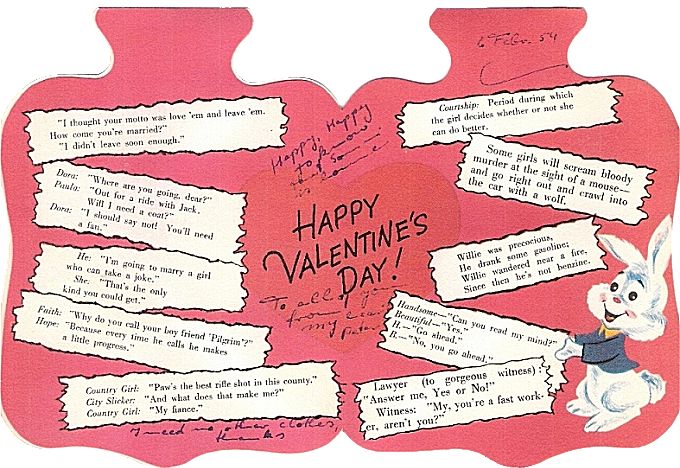 "I thought your motto was love 'em and leave 'em.
How come you're married?"
"I didn't leave soon enough."
Dora: "Where are you going, dear?"
Paula: "Out for a ride with Jack.
Will I need a coat?"
Dora: "I should say not! You'll need
a fan."
He: "I'm going to marry a girl
who can take a joke."
She: "That's the only
kind you could get."
Faith: "Why do you call your boy friend 'Pilgrim'?"
Hope: "Because every time he calls he makes
a little progress."
Country Girl: "Paw's the best rifle shot in this county."
City Slicker: "And what does that make me?"
Country Girl: "My fiance."
I need no other clothes,
thanks
Happy, Happy
HAPPY
VALENTINE'S
DAY!
To all of you
from
my
Peter
6 Febr. 54
Courtship: Period during which
the girl decides whether or not she
can do better.
Some girls will scream bloody
murder at the sight of a mouse—
and go right out and crawl into
the car with a wolf.
Willie was precocious,
He drank some gasoline;
Willie wandered near a fire,
Since then he's not benzine.
Handsome—"Can you read my mind?"
Beautiful—"Yes."
H.—"Go ahead."
B.—"No, you go ahead."
Lawyer (to gorgeous witness):
"Answer me, Yes or No!"
Witness: "My, you're a fast work-
er, aren't you?"